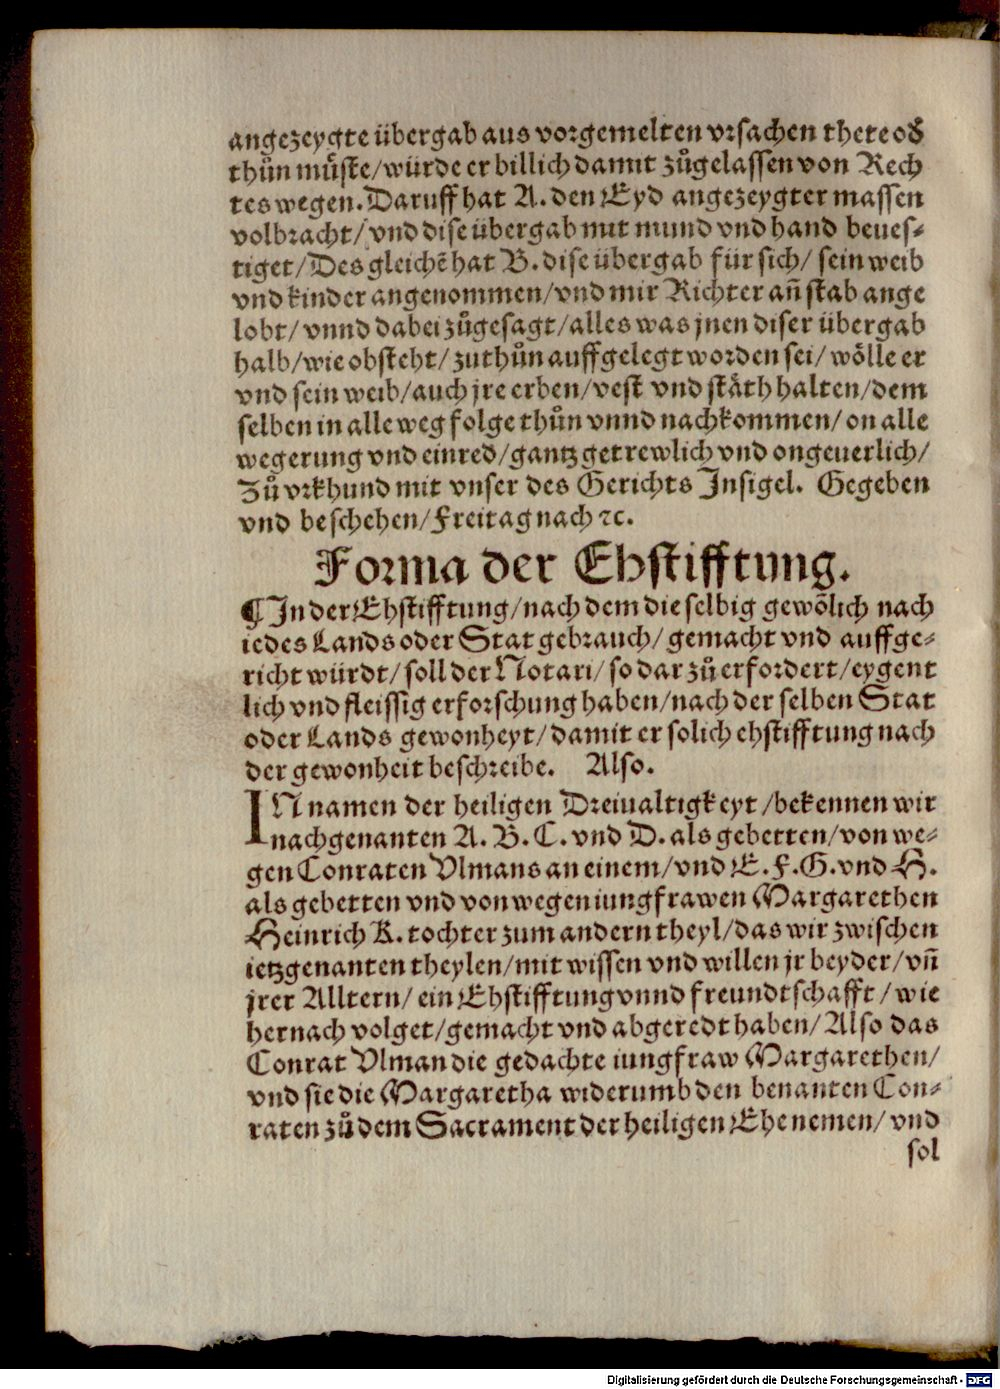 angezeygte übergab aus vorgemelten vrsachen thete oð
thůn můste/würde er billich damit zůgelassen von Rech
tes wegen. Daruff hat A. den Eyd angezeygter massen
volbracht/vnd dise übergab mit mund vnd hand beues-
tiget/Des gleichē hat B. dise übergab für sich/ sein weib
vnd kinder angenommen/vnd mir Richter an̄ stab ange
lobt/ vnnd dabei zůgesagt/alles was jnen diser übergab
halb/wie obsteht/ zuthůn auffgelegt worden sei/ wölle er
vnd sein weib/auch jre erben/vest vnd stäth halten/dem
selben in alle weg folge thůn vnnd nachkommen/ on alle
wegerung vnd einred/gantz getrewlich vnd ongeuerlich/
Zů vrkhund mit vnser des Gerichts Insigel. Gegeben
vnd beschehen/Freitag nach ꝛc.
Forma der Ehstifftung.
¶ In der Ehstifftung/nach dem die selbig gewōlich nach
iedes Lands oder Stat gebrauch/ gemacht vnd auffge-
richt würdt/ soll der Notari/ so dar zů erfordert/eygent
lich vnd fleissig erforschung haben/nach der selben Stat
oder Lands gewonheyt/damit er solich ehstifftung nach
der gewonheit beschreibe. Also.
IN namen der heiligen Dreiualtigkeyt/bekennen wir
nachgenanten A. B. C. vnd D. als gebetten/von we-
gen Conraten Vlmans an einem/vnd E. F. G. vnd H.
als gebetten vnd von wegen iungfrawen Margarethen
Heinrich K. tochter zum andern theyl/das wir zwischen
ietzgenanten theylen/mit wissen vnd willen jr beyder/vn̄
jrer Alltern/ ein Ehstifftung vnnd freundtschafft/wie
hernach volget/gemacht vnd abgeredt haben/Also das
Conrat Vlman die gedachte iungfraw Margarethen/
vnd sie die Margaretha widerumb den benanten Con-
raten zů dem Sacrament der heiligen Ehe nemen/ vnd
sol
Digitalisierung gefördert durch die Deutsche Forschungsgemeinschaft - DFG